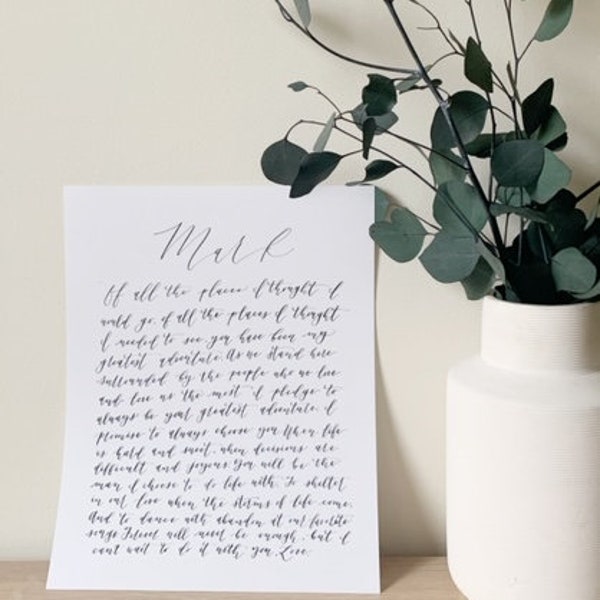 Mark
Of all the places I thought I
would go, of all the places I thought
I needed to see you have been my
greatest adventure. As we stand here
surrounded by the people who we love
and love us the most I pledge to
always be your greatest adventure. I
promise to always choose you. When life
is hard and sweet, when decisions are
difficult and joyous. You will be the
man I choose to do life with. To shelter
in our love when the storms of life come.
And to dance with abandon at our favorite
songs. Forever will never be enough, but I
can't wait to do it with you. Love.